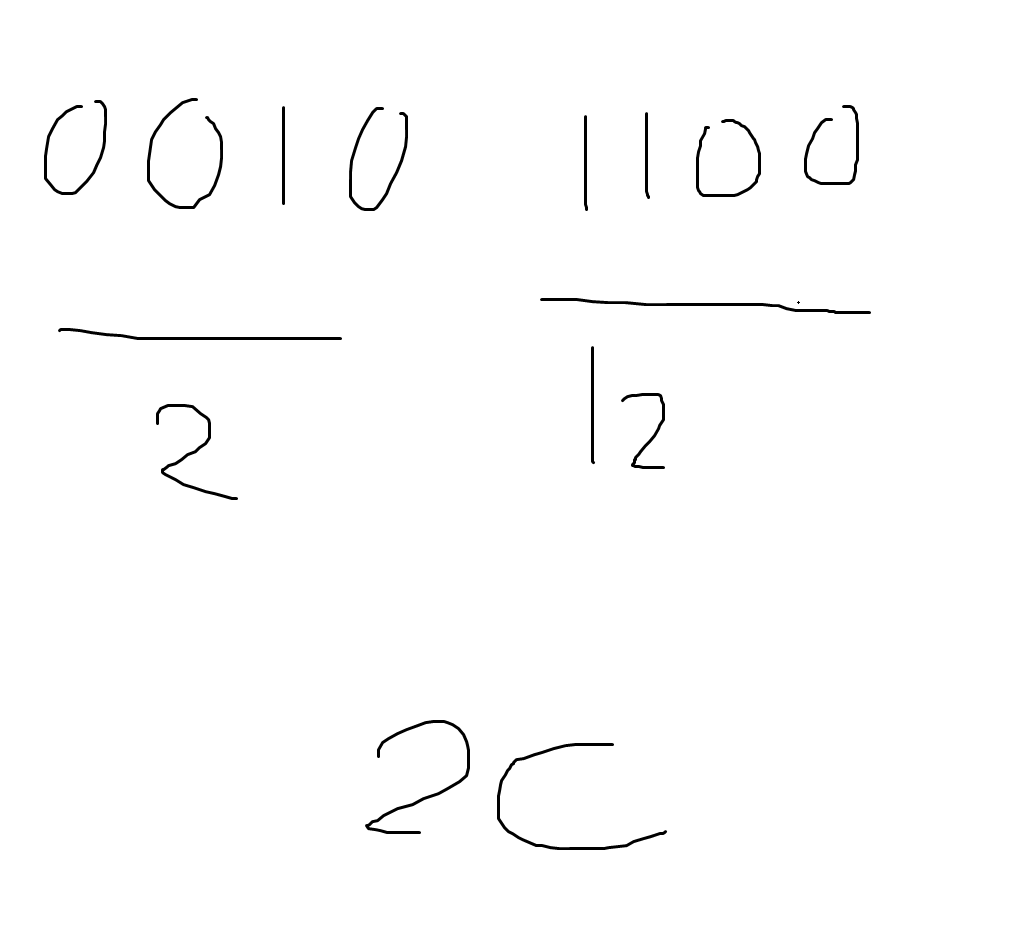 0010 1100
2 12
2C